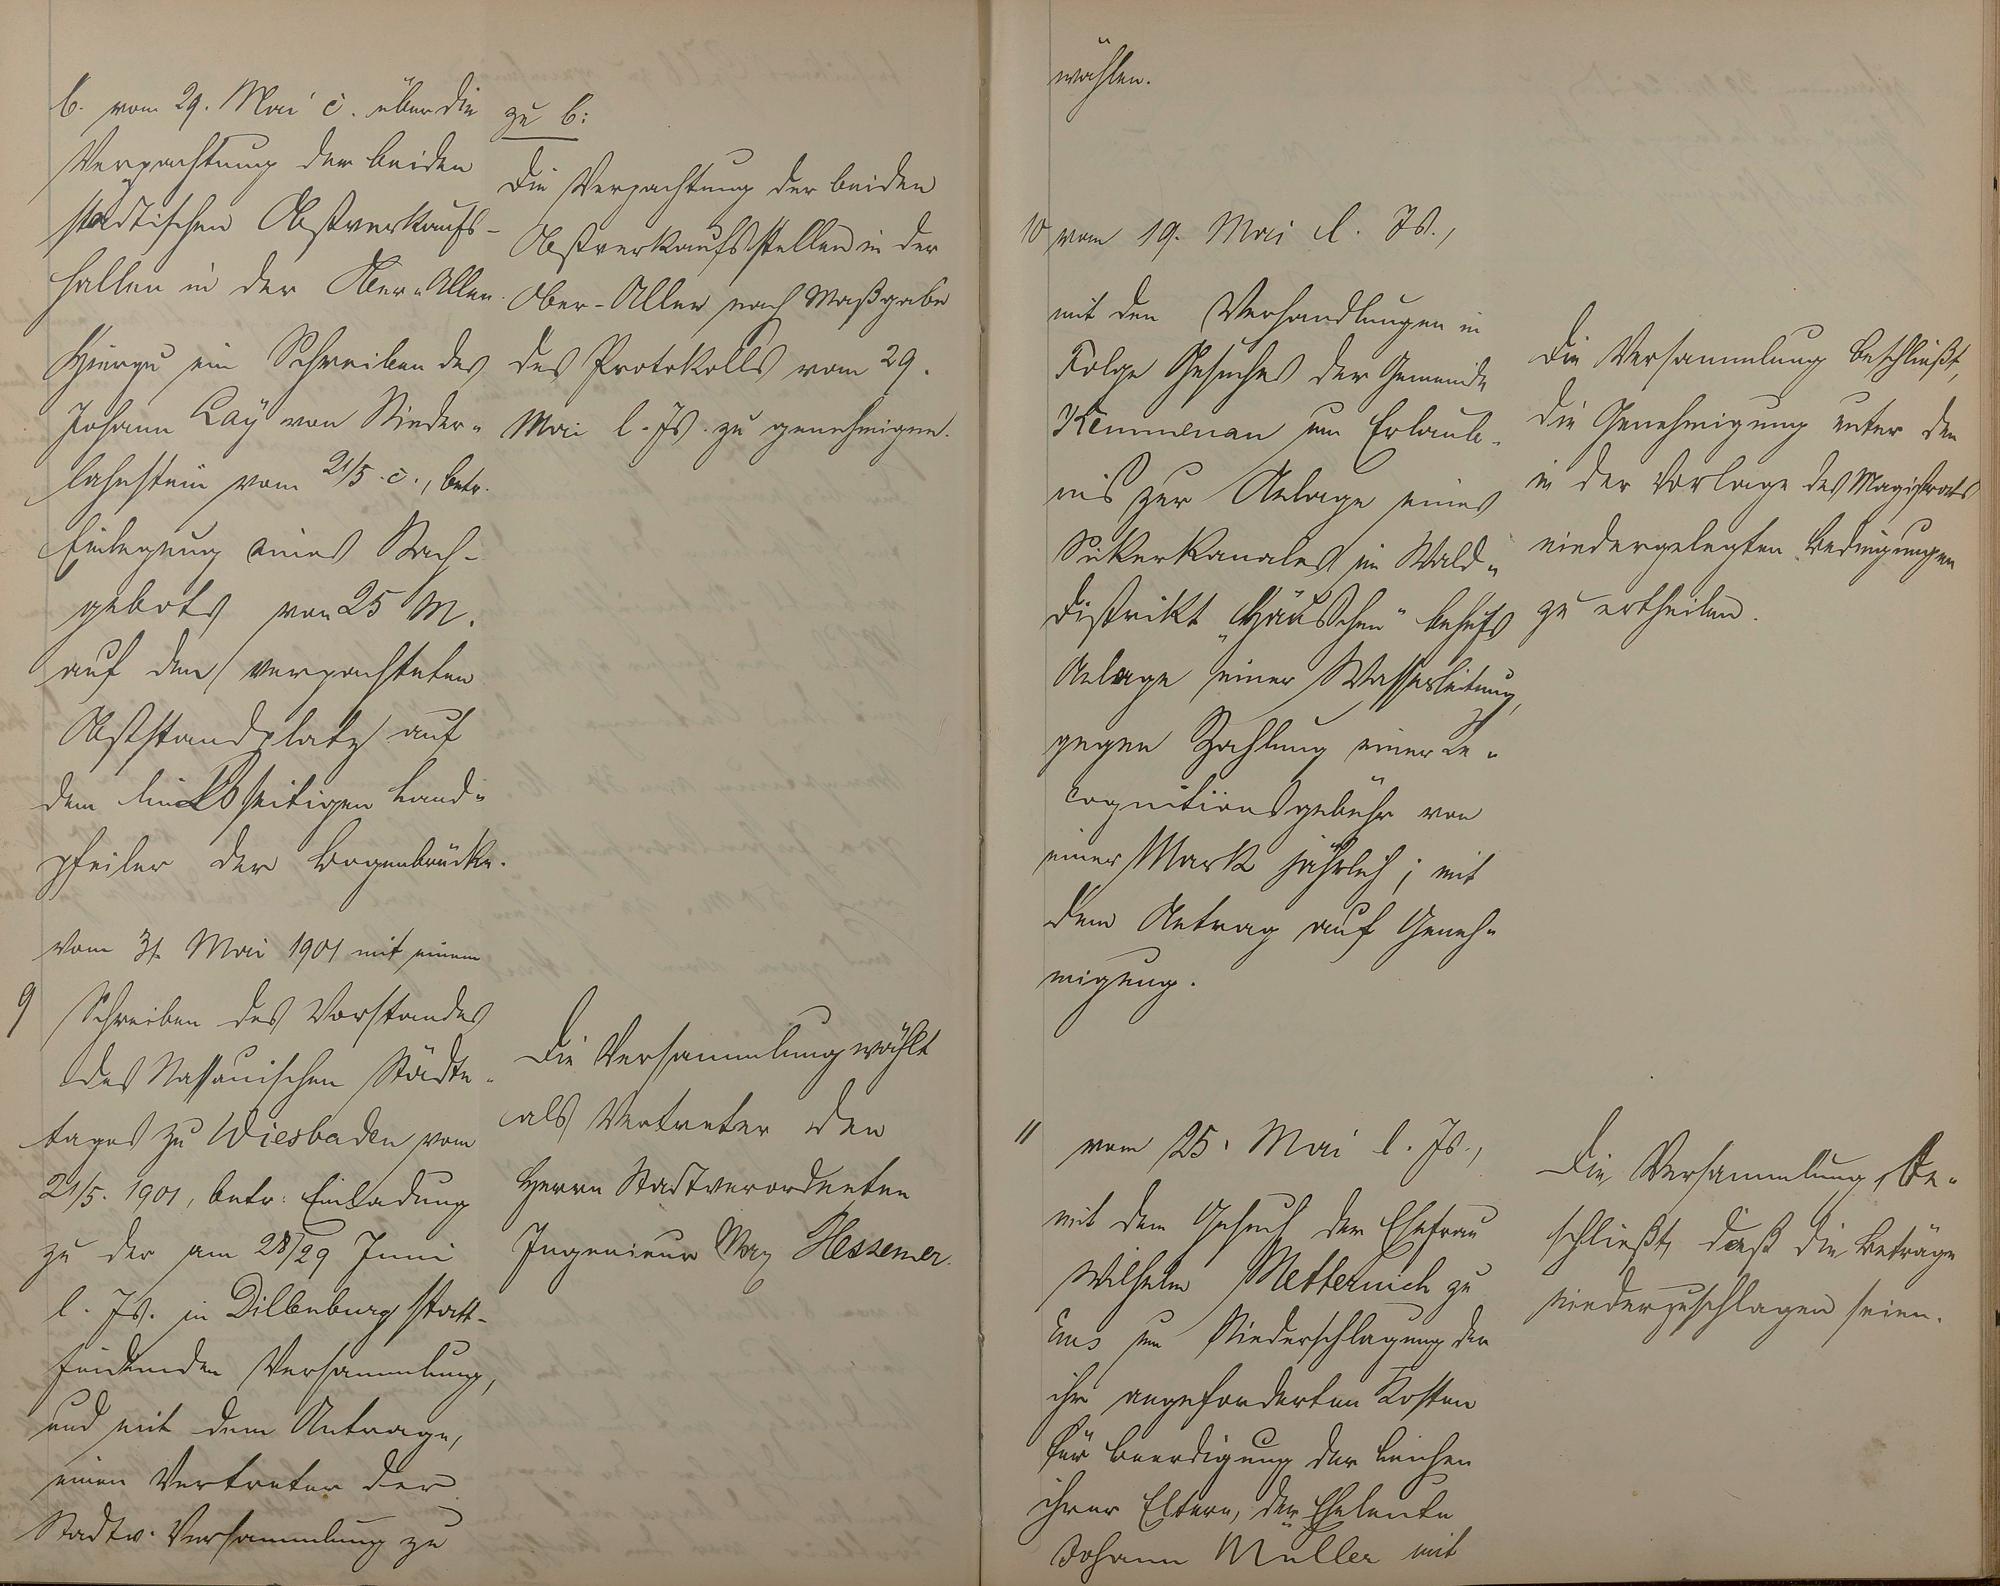 b. vom 29. Mai c. über die
Verpachtung der beiden
städtischen Obstverkaufs-
hallen in der Ober-Allee.
Hierzu ein Schreiben des
Johann Laÿ von Nieder-
lahnstein vom 21/5. c., betr.
Einlegung eines Nach-
gebots von 25 M.
auf den verpachteten
Obststandplatz auf
dem linksseitigen Land-
pfeiler der Bogenbrücke.
zu b:
Die Verpachtung der beiden
Obstverkaufsstellen in der
Ober-Allee nach Maßgabe
des Protokolls vom 29.
Mai l. Js. zu genehmigen.
9
vom 31. Mai 1901 mit einem
Schreiben des Vorstandes
des Nassauischen Städte-
tages zu Wiesbaden vom
21/5. 1901, betr: Einladung
zu der am 28/29 Juni
l. Js. in Dillenburg statt-
findenden Versammlung,
und mit dem Antrage,
einen Vertreter der
Stadtv. Versammlung zu
Die Versammlung wählt
als Vertreter den
Herrn Stadtverordneten
Ingenieur Max Hessemer.
wählen.
10 vom 19. Mai l. Js.,
mit den Verhandlungen in
Folge Gesuches der Gemeinde
Kemmenau um Erlaub-
nis zur Anlage eines
Sickerkanales im Wald-
distrikt "Häuschen" behufs
Anlage einer Wasserleitung,
gegen Zahlung einer Re-
cognitionsgebühr von
einer Mark jährlich; mit
dem Antrag auf Geneh-
migung.
Die Versammlung beschließt,
die Genehmigung unter den
in der Vorlage des Magistrats
niedergelegten Bedingungen
zu ertheilen.
11 vom 25. Mai l. Js.,
mit dem Gesuch der Ehefrau
Wilhelm Metternich zu
Ems um Niederschlagung der
ihr angeforderten Kosten
für Beerdigung der Leichen
ihrer Eltern, der Eheleute
Johann Müller mit
Die Versammlung be-
schließt, daß die Beträge
niederzuschlagen seien.